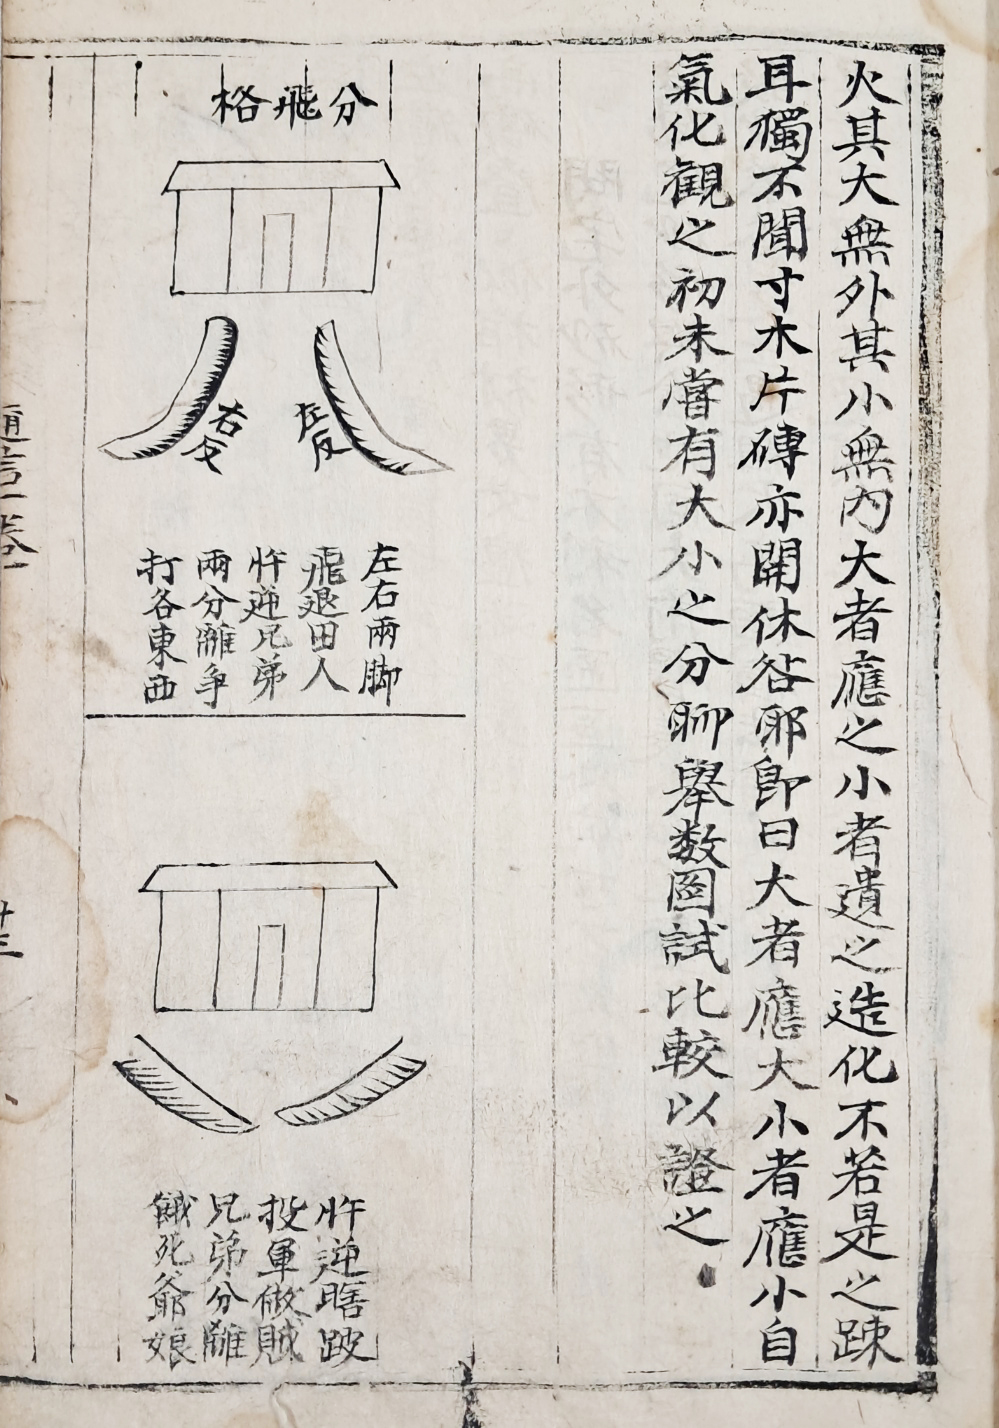 火其大無外其小無內大者應之小者遺之造化不若是之踈
耳獨不聞寸木片磚亦開休咎耶即曰大者應大小者應小自
氣化観之初未嘗有大小之分聊舉数圖試比較以證之
分飛格
左反
右反
左右兩脚
飛退田人
忤逆兄弟
兩分離争
打各東西
忤逆瞎跛
投軍做賊
兄弟分離
餓死爺娘
卷一
十三